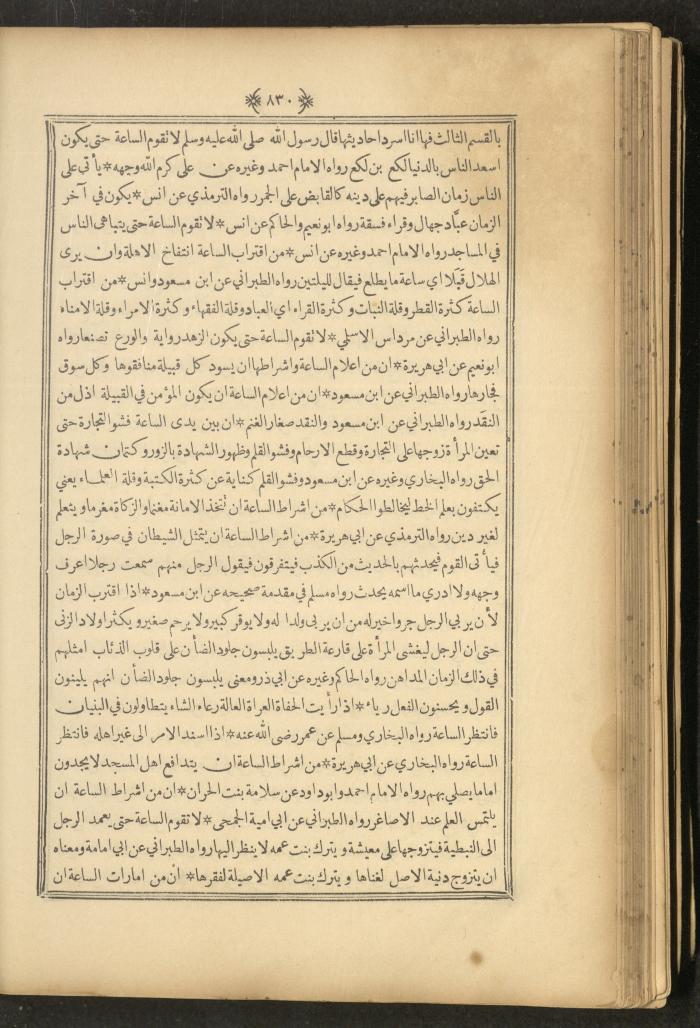 ٨٣٠
بالقسم الثالث فها انا اسرد احاديثها قال رسول الله صلى الله عليه وسلم لا تقوم الساعة حتى يكون
اسعد الناس بالدنيا لكع بن لكع رواه الامام احمد وغيره عن على كرم الله وجهه * يأتي على
الناس زمان الصابر فيهم على دينه كالقابض على الجمر رواه الترمذي عن انس * يكون في آخر
الزمان عبَّاد جهال وقراء فسقة رواه ابو نعيم والحاكم عن انس * لا تقوم الساعة حتى يتباهى الناس
في المساجد رواه الامام احمد وغيره عن انس * من اقتراب الساعة انتفاخ الاهلة وان يرى
الهلال قَبَلا اي ساعة ما يطلع فيقال لليلتين رواه الطبراني عن ابن مسعود وانس * من اقتراب
الساعة كثرة القطر وقلة النبات وكثرة القراء اي العباد وقلة الفقهاء وكثرة الامراء وقلة الامناء
رواه الطبراني عن مرداس الاسلمي * لا تقوم الساعة حتى يكون الزهد رواية والورع تصنعا رواه
ابو نعيم عن ابي هريرة * ان من اعلام الساعة واشراطها ان يسود كل قبيلة منافقوها وكل سوق
فجارها رواه الطبراني عن ابن مسعود * ان من اعلام الساعة ان يكون المؤمن في القبيلة اذل من
النقَد رواه الطبراني عن ابن مسعود والنقد صغار الغنم * ان بين يدى الساعة فشو التجارة حتى
تعين المرأة زوجها على التجارة وقطع الارحام وفشو القلم وظهور الشهادة بالزور وكتمان شهادة
الحق رواه البخاري وغيره عن ابن مسعود وفشو القلم كناية عن كثرة الكتبة وقلة العلماء يعني
يكتفون بعلم الخط ليخالطوا الحكام * من اشراط الساعة ان تتخذ الامانة مغنما والزكاة مغرما ويتعلم
لغير دين رواه الترمذي عن ابي هريرة * من اشراط الساعة ان يتمثل الشيطان في صورة الرجل
فيأتى القوم فيحدثهم بالحديث من الكذب فيتفرقون فيقول الرجل منهم سمعت رجلا اعرف
وجهه ولا ادري ما اسمه يحدث رواه مسلم في مقدمة صحيحه عن ابن مسعود * اذا اقترب الزمان
لأن يربي الرجل جروا خير له من ان يربى ولدا له ولا يوقر كبير ولا يرحم صغير ويكثر اولاد الزنى
حتى ان الرجل ليغشى المرأة على قارعة الطريق يلبسون جلود الضأن على قلوب الذئاب امثلهم
في ذلك الزمان المداهن رواه الحاكم وغيره عن ابي ذر ومعنى يلبسون جلود الضأن انهم يلينون
القول ويحسنون الفعل رياء * اذا رأيت الحفاة العراة العالة رعاء الشاء يتطاولون في البنيان
فانتظر الساعة رواه البخاري ومسلم عن عمر رضى الله عنه * اذا اسند الامر الى غير اهله فانتظر
الساعة رواه البخاري عن ابي هريرة * من اشراط الساعة ان يتدافع اهل المسجد لا يجدون
اماما يصلي بهم رواه الامام احمد وابو داود عن سلامة بنت الحران * ان من اشراط الساعة ان
يلتمس العلم عند الاصاغر رواه الطبراني عن ابي امية الجمحي * لا تقوم الساعة حتى يعمد الرجل
الى النبطية فيتزوجها على معيشة ويترك بنت عمه لا ينظر اليها رواه الطبراني عن ابي امامة ومعناه
ان يتزوج دنية الاصل لغناها ويترك بنت عمه الاصيلة لفقرها * ان من امارات الساعة ان